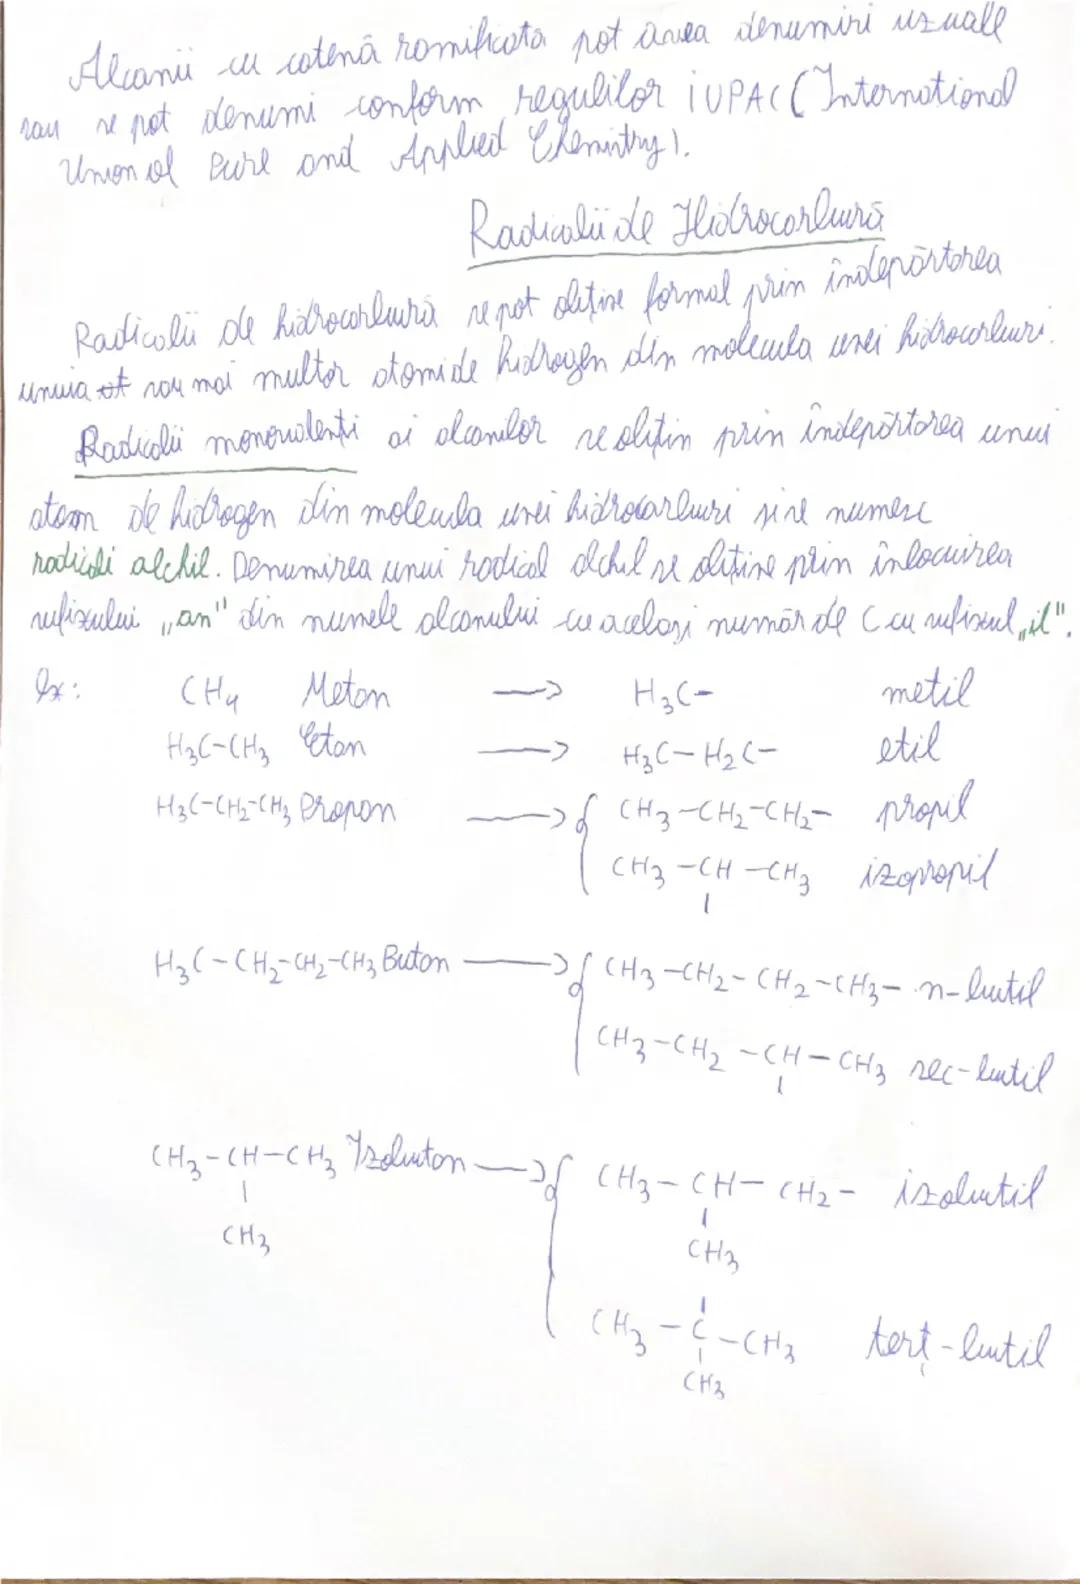 Alcanii cu catenă ramificată pot avea denumiri uzuale
sau se pot denumi conform regulilor IUPAC (International
Union of Pure and Applied Chemistry).
Radicalii de Hidrocarbură
Radicalii de hidrocarbură se pot obține formal prin îndepărtarea
unuia sau mai multor atomi de hidrogen din molecula unei hidrocarburi.
Radicalii monovalenți ai alcanilor se obțin prin îndepărtarea unui
atom de hidrogen din molecula unei hidrocarburi și se numesc
radicali alchil. Denumirea unui radical alchil se obține prin înlocuirea
sufixului „an" din numele alcanului cu același număr de C cu sufixul „il".
Ex: CH4 Metan → H3C- metil
H3C-CH3 Etan → H3C-H2C- etil
H3C-CH2-CH3 Propan → CH3-CH2-CH2- propil
CH3-CH-CH3 izopropil
|
H3C-CH2-CH2-CH3 Butan → CH3-CH2-CH2-CH3- n-butil
CH3-CH2-CH-CH3 sec-butil
|
CH3-CH-CH3 Izobutan → CH3-CH-CH2- izobutil
| |
CH3 CH3
|
CH3-C-CH3 terț-butil
|
CH3